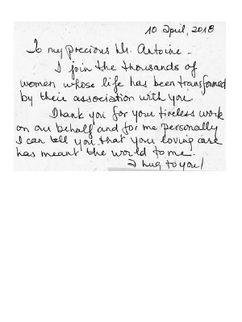 10 April, 2018
To my precious Dr. Antoine -
I join the thousands of
women whose life has been transformed
by their association with you.
Thank you for your tireless work
on our behalf and for me personally
I can tell you that your loving care
has meant the world to me.
A hug to you!